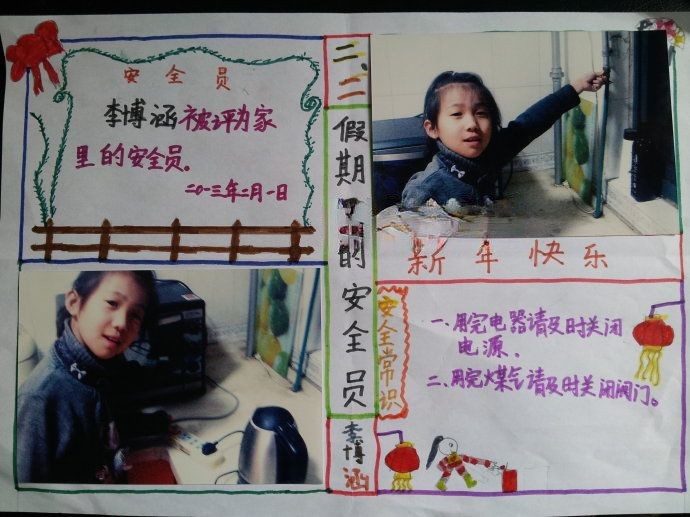 安全员
李博涵被评为家
里的安全员。
二〇一三年二月一日
二、二
假期
的安全员
李博涵
新年快乐
安全常识
一、用完电器请及时关闭
电源、
二、用完火煤气请及时关闭阀门。